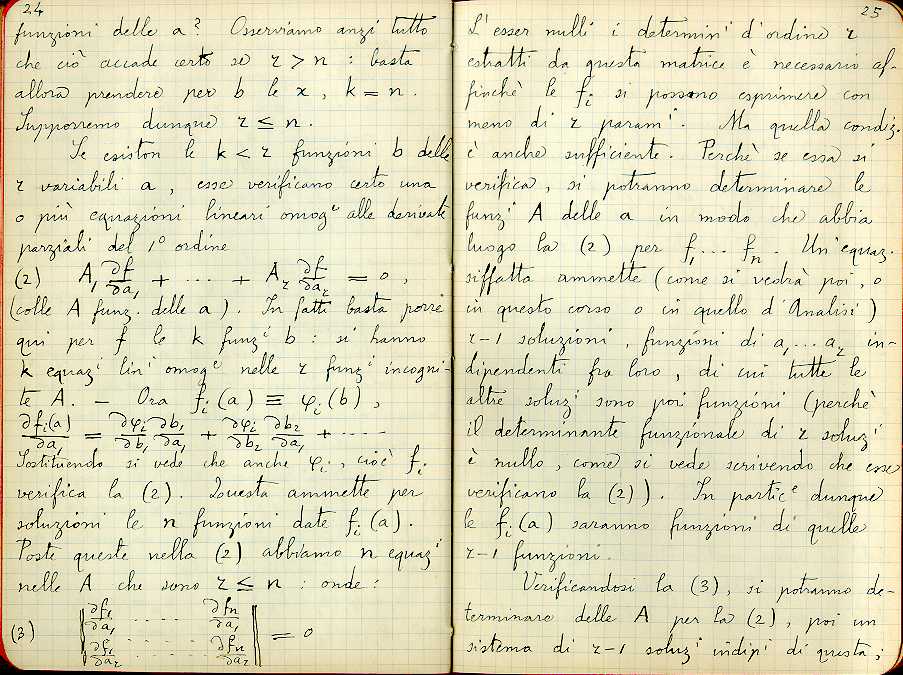 24
funzioni delle a? Osserviamo anzi tutto
che ciò accade certo se r > n : basta
allora prendere per b le x, k = n.
Supporremo dunque r ≤ n.
Se esiston le k < r funzioni b delle
r variabili a, esse verificano certo una
o più equazioni lineari omog^e alle derivate
parziali del 1° ordine
(2) A₁ ∂f/∂a₁ + ... + A_r ∂f/∂a_r = 0,
(colle A funz. delle a). In fatti basta porre
qui per f le k funz^i b : si hanno
k equaz^i lin^i omog^e nelle r funz^i incogni-
te A. — Ora f_i(a) ≡ φ_i(b),
∂f_i(a)/∂a₁ = ∂φ_i/∂b₁ ∂b₁/∂a₁ + ∂φ_i/∂b₂ ∂b₂/∂a₁ + .....
Sostituendo si vede che anche φ_i, cioè f_i
verifica la (2). Questa ammette per
soluzioni le n funzioni date f_i(a).
Poste queste nella (2) abbiamo n equaz^i
nelle A che sono r ≤ n : onde :
(3) || ∂f₁/∂a₁ ..... ∂f_n/∂a₁
∂f₁/∂a_r ..... ∂f_n/∂a_r || = 0
25
L'esser nulli i determin^i d'ordine r
estratti da questa matrice è necessario af-
finchè le f_i si possono esprimere con
meno di r param^i. Ma quella condiz.
è anche sufficiente. Perchè se essa si
verifica, si potranno determinare le
funz^i A delle a in modo che abbia
luogo la (2) per f₁ ... f_n. Un'equaz.
siffatta ammette (come si vedrà poi, o
in questo corso o in quello d'Analisi)
r-1 soluzioni, funzioni di a₁ ... a_r in-
dipendenti fra loro, di cui tutte le
altre soluz^i sono poi funzioni (perchè
il determinante funzionale di r soluz^i
è nullo, come si vede scrivendo che esse
verificano la (2)). In partic^e dunque
le f_i(a) saranno funzioni di quelle
r-1 funzioni.
Verificandosi la (3), si potranno de-
terminare delle A per la (2), poi un
sistema di r-1 soluz^i indip^i di questa;